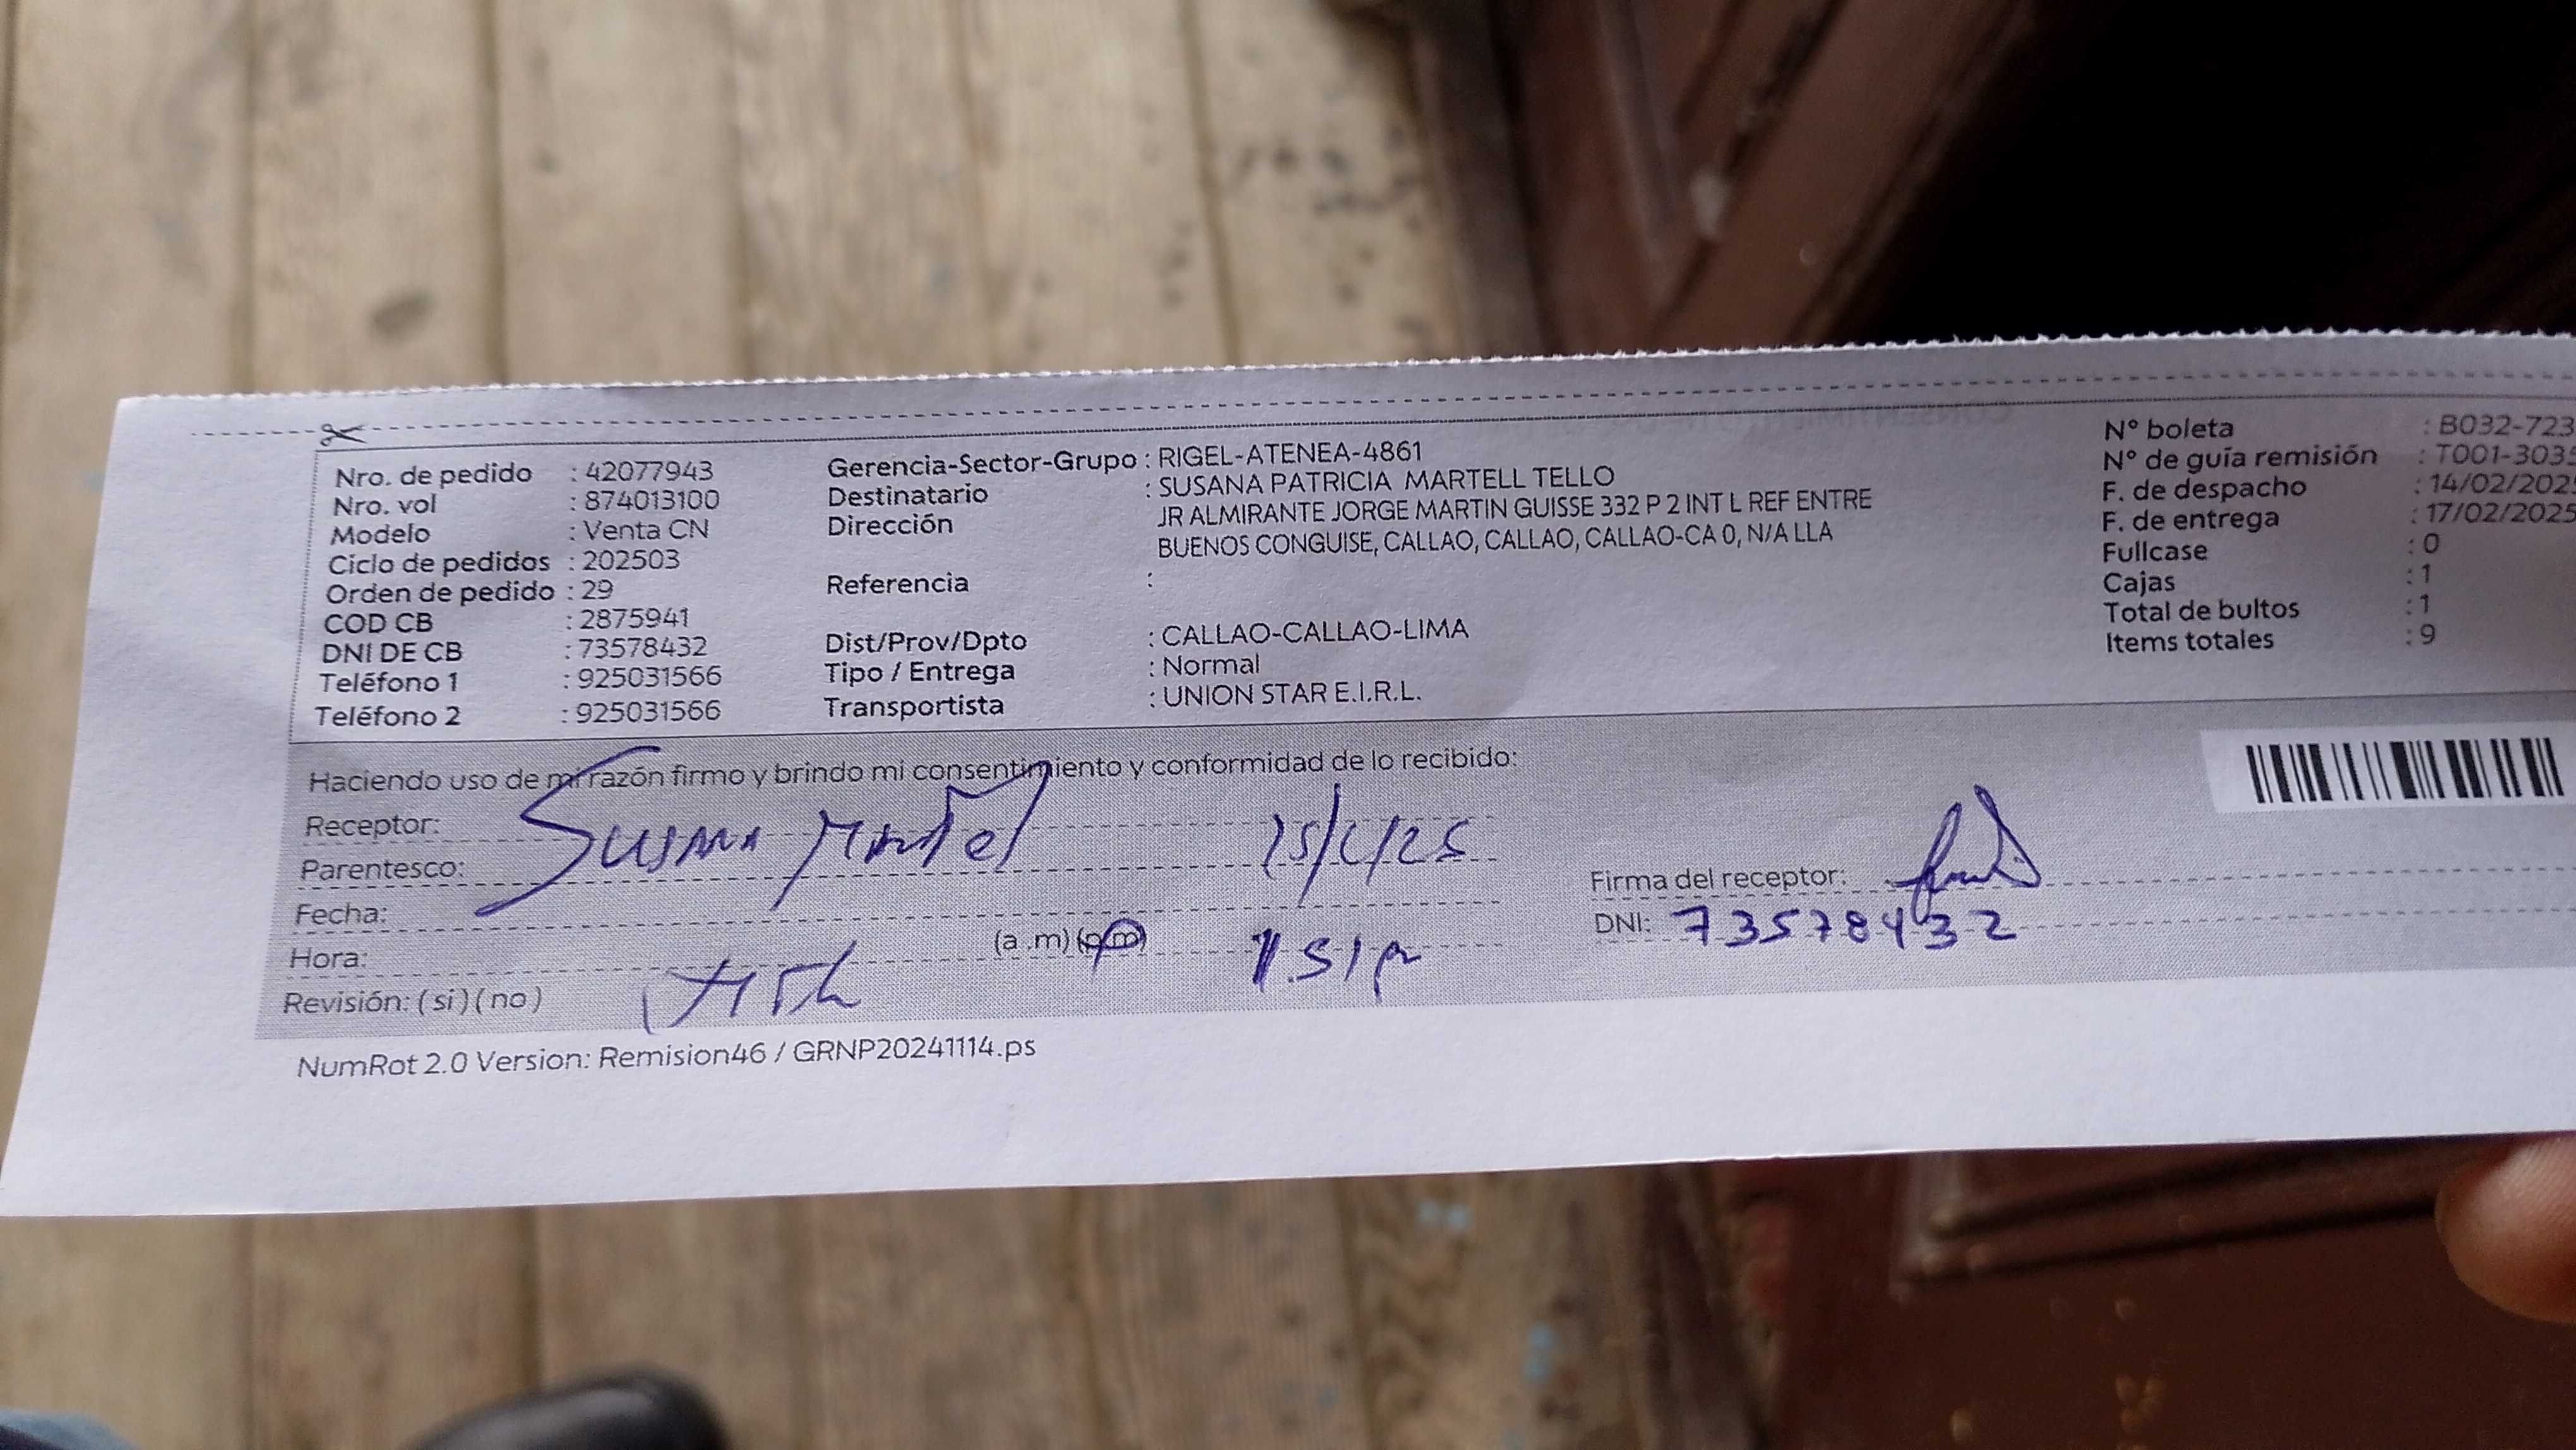 Nro. de pedido : 42077943
Nro. vol : 874013100
Modelo : Venta CN
Ciclo de pedidos : 202503
Orden de pedido : 29
COD CB : 2875941
DNI DE CB : 73578432
Teléfono 1 : 925031566
Teléfono 2 : 925031566
Gerencia-Sector-Grupo : RIGEL-ATENEA-4861
Destinatario : SUSANA PATRICIA MARTELL TELLO
Dirección JR ALMIRANTE JORGE MARTIN GUISSE 332 P 2 INT L REF ENTRE
BUENOS CONGUISE, CALLAO, CALLAO, CALLAO-CA 0, N/A LLA
Referencia :
Dist/Prov/Dpto : CALLAO-CALLAO-LIMA
Tipo / Entrega : Normal
Transportista : UNION STAR E.I.R.L.
Nº boleta : B032-723
Nº de guía remisión : T001-3035
F. de despacho : 14/02/2025
F. de entrega : 17/02/2025
Fullcase : 0
Cajas : 1
Total de bultos : 1
Items totales : 9
Haciendo uso de mi razón firmo y brindo mi consentimiento y conformidad de lo recibido:
Receptor:
Susana Martel
Parentesco:
Fecha:
Hora: (a .m) (p.m)
Revisión: ( si ) ( no )
Firma del receptor:
DNI: 73578432
NumRot 2.0 Version: Remision46 / GRNP20241114.ps